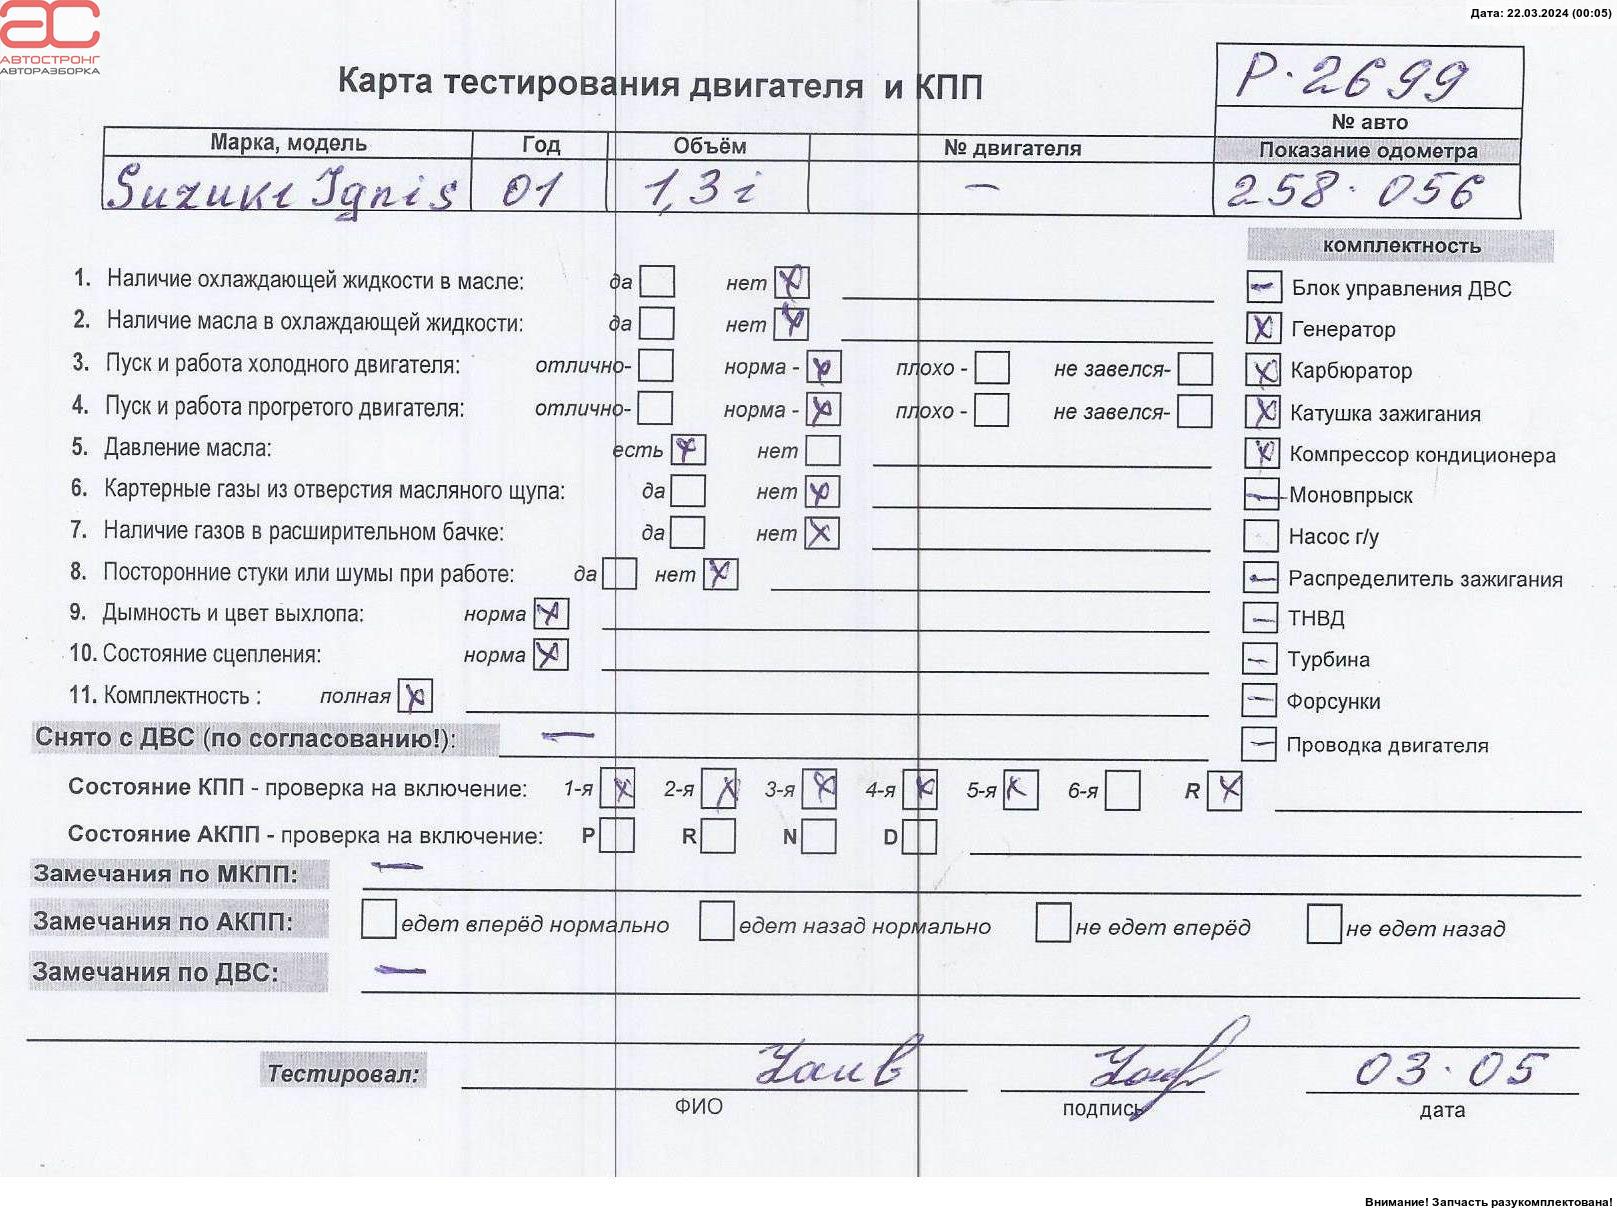 Дата: 22.03.2024 (00:05)
АС
АВТОСТРОНГ
АВТОРАЗБОРКА
Карта тестирования двигателя и КПП
Р·2699
№ авто
Марка, модель Год Объём № двигателя Показание одометра
Suzuki Ignis 01 1,3i — 258·056
комплектность
1. Наличие охлаждающей жидкости в масле: да нет
Блок управления ДВС
2. Наличие масла в охлаждающей жидкости: да нет
Генератор
3. Пуск и работа холодного двигателя: отлично- норма - плохо - не завелся-
Карбюратор
4. Пуск и работа прогретого двигателя: отлично- норма - плохо - не завелся-
Катушка зажигания
5. Давление масла: есть нет
Компрессор кондиционера
6. Картерные газы из отверстия масляного щупа: да нет
Моновпрыск
7. Наличие газов в расширительном бачке: да нет
Насос г/у
8. Посторонние стуки или шумы при работе: да нет
Распределитель зажигания
9. Дымность и цвет выхлопа: норма
ТНВД
10. Состояние сцепления: норма
Турбина
11. Комплектность : полная
Форсунки
Снято с ДВС (по согласованию!): —
Проводка двигателя
Состояние КПП - проверка на включение: 1-я 2-я 3-я 4-я 5-я 6-я R
Состояние АКПП - проверка на включение: P R N D
Замечания по МКПП: —
Замечания по АКПП: едет вперёд нормально едет назад нормально не едет вперёд не едет назад
Замечания по ДВС: —
Тестировал: 03·05
ФИО подпись дата
Внимание! Запчасть разукомплектована!